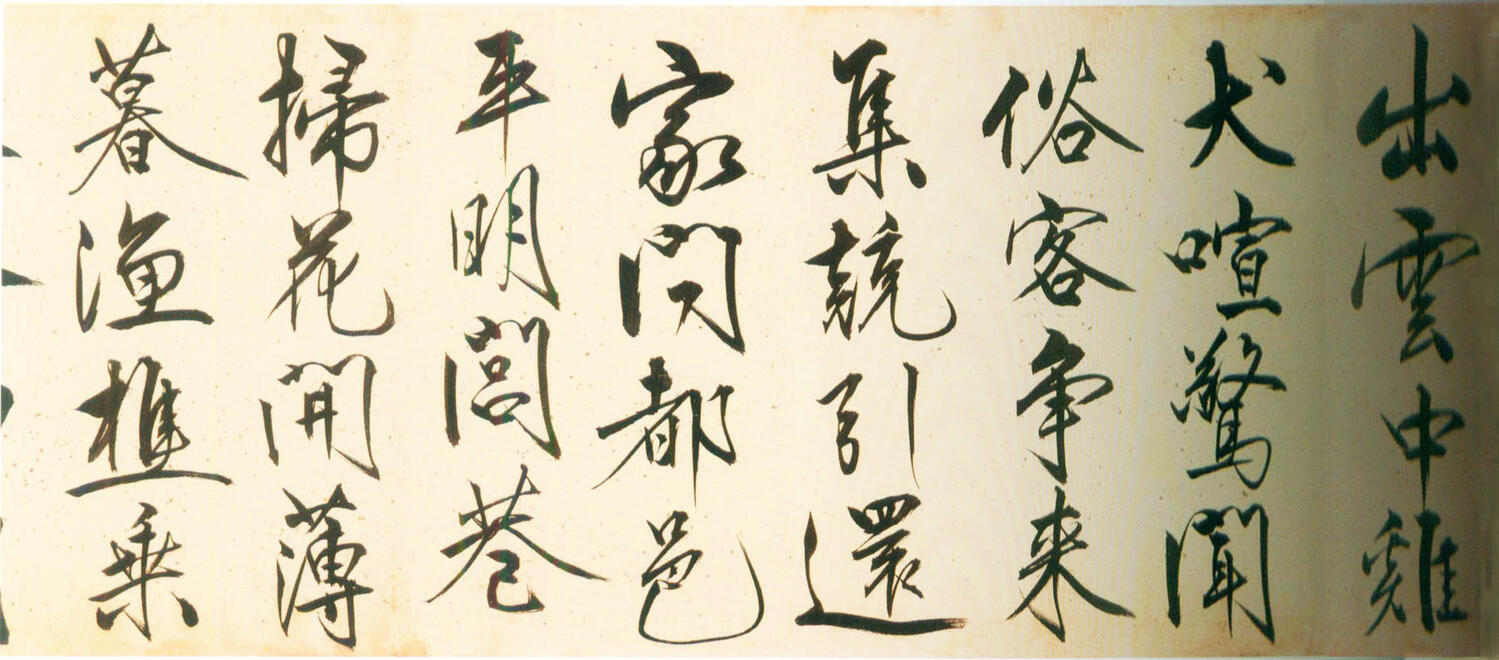 出雲中雞
犬喧驚聞
俗客争来
集競引還
家問都邑
平明閭巷
掃花開薄
暮漁樵乗